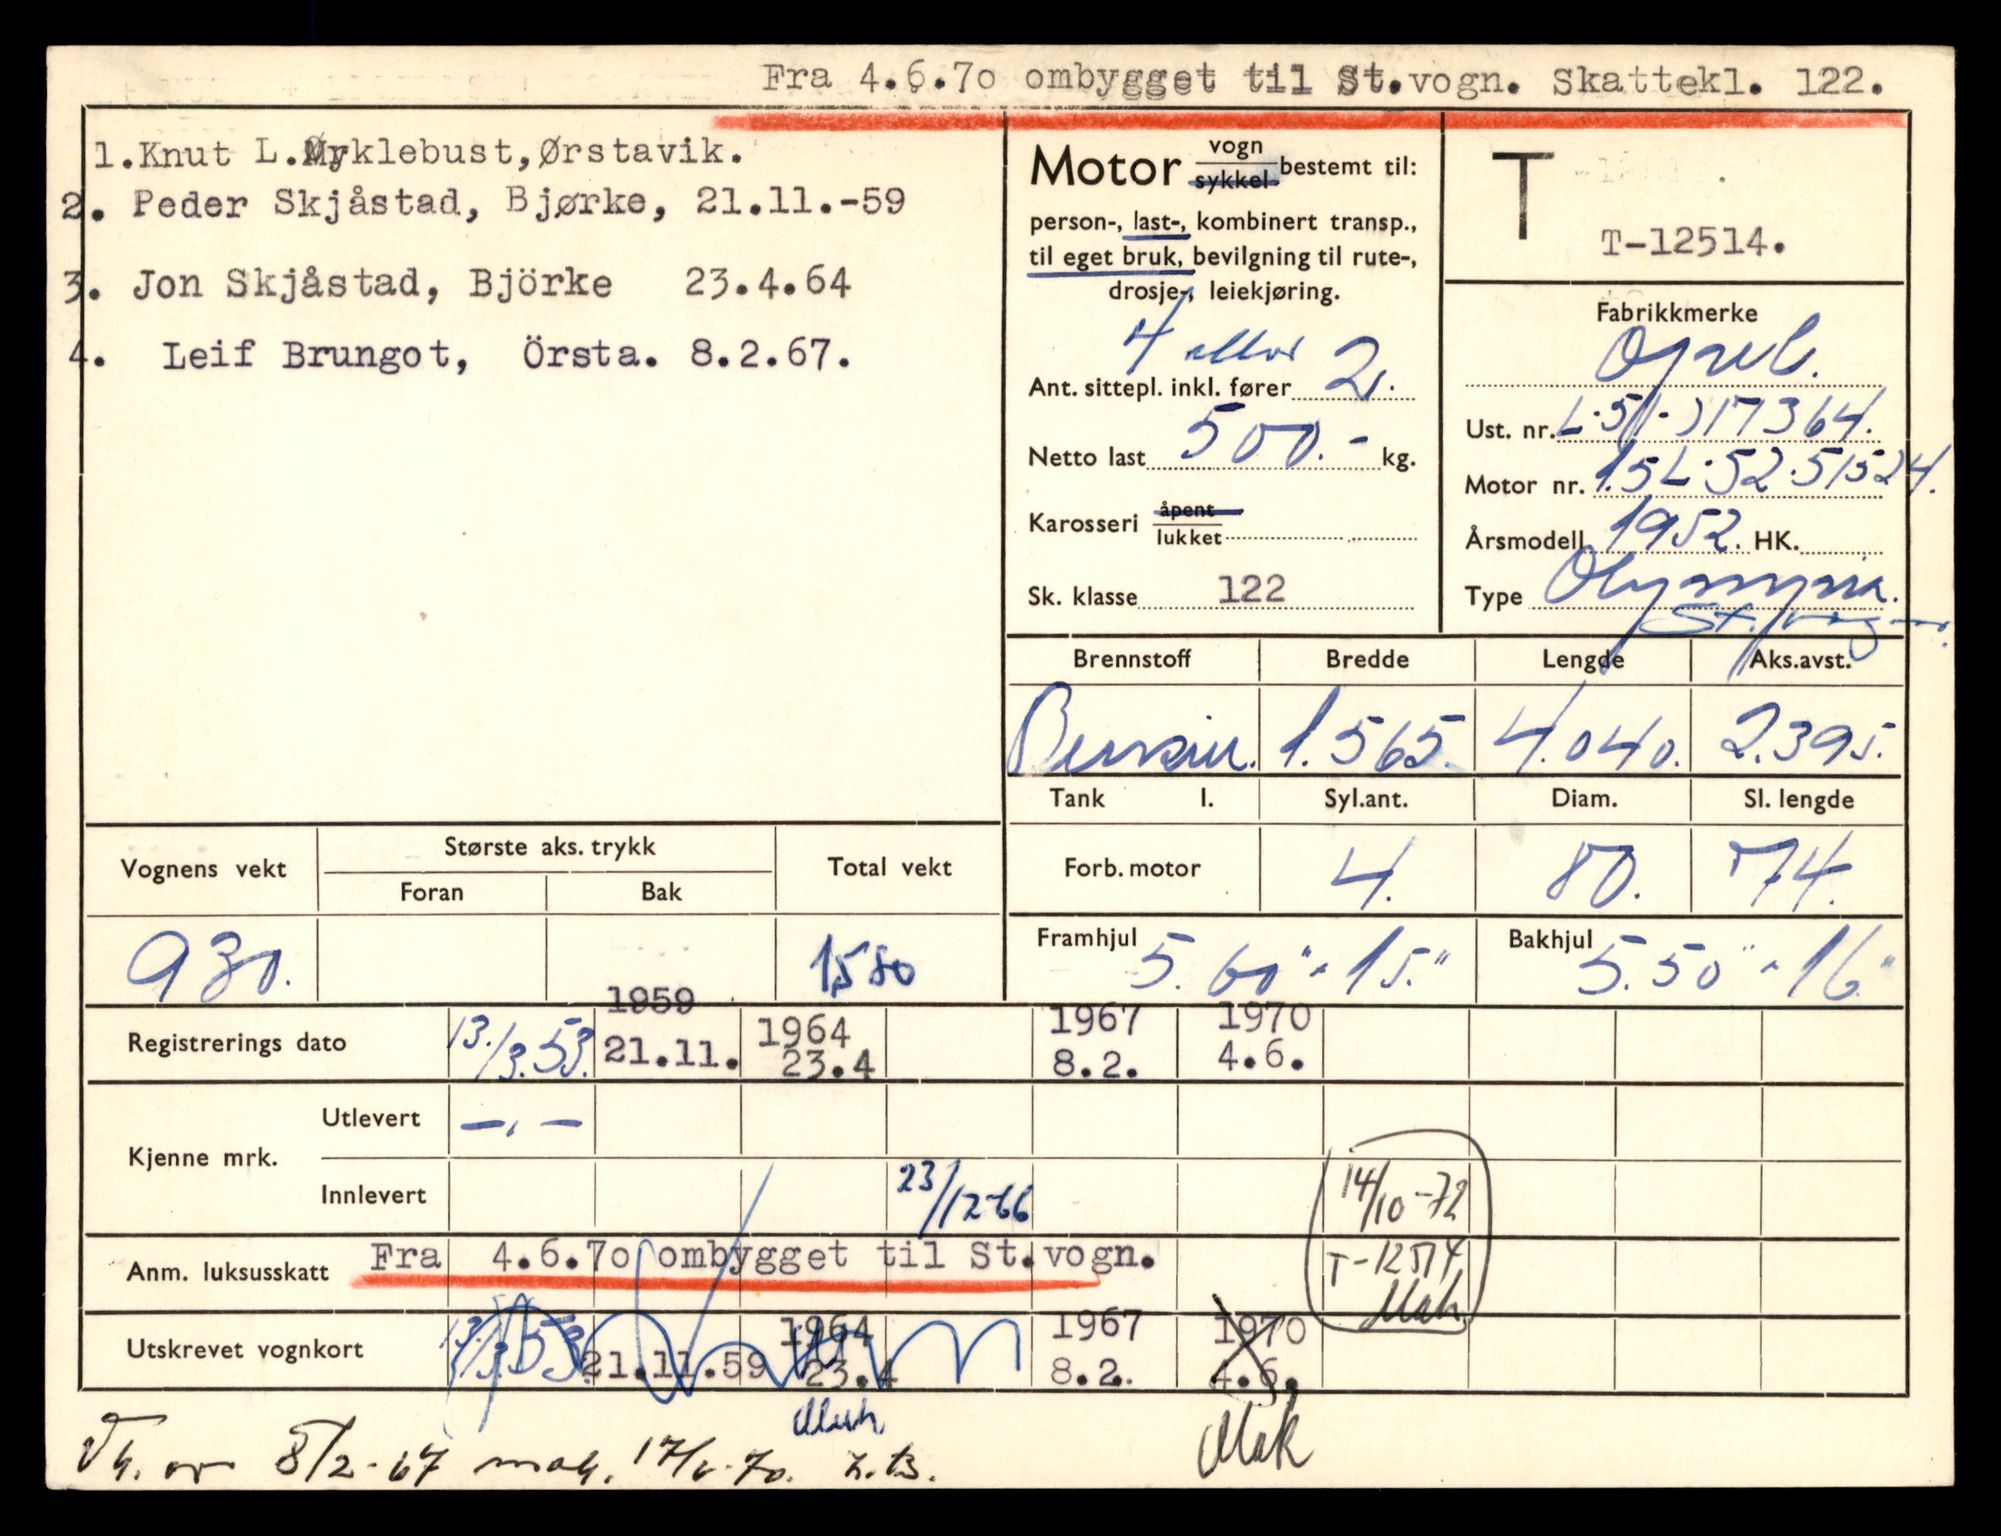 Fra 4.6.70 ombygget til St.vogn. Skattekl. 122.
1.Knut L.Myklebust,Ørstavik.
2. Peder Skjåstad, Bjørke, 21.11.-59
3. Jon Skjåstad, Björke 23.4.64
4. Leif Brungot, Örsta. 8.2.67.
Motor vogn sykkel bestemt til:
person-, last-, kombinert transp.,
til eget bruk, bevilgning til rute-,
drosje-, leiekjøring.
4 eller
Ant. sittepl. inkl. fører 2.
Netto last 500.- kg.
Karosseri åpent lukket
Sk. klasse 122
T
T-12514.
Fabrikkmerke
Opel.
Ust. nr. L-51-)17364.
Motor nr. 1.5L-52-51524.
Årsmodell 1952. HK.
Type Olympia.
St. vogn.
Brennstoff Bredde Lengde Aks.avst.
Bensin. 1.565. 4.040. 2.395.
Tank l. Syl.ant. Diam. Sl. lengde
Forb. motor 4. 80. 74.
Framhjul 5.60"-15." Bakhjul 5.50"-16"
Vognens vekt Største aks. trykk Total vekt
Foran Bak
930. 1580
Registrerings dato 13./3.53. 1959 21.11. 1964 23.4 1967 8.2. 1970 4.6.
Kjenne mrk.
Utlevert -.-
Innlevert 23/12-66 14/10-72
T-12514
Mak.
Anm. luksusskatt Fra 4.6.70 ombygget til St.vogn.
Utskrevet vognkort 13./3.53. 21.11.59 1964 23.4 1967 8.2. 1970 4.6.
Mak
Mak
Vk. av 8/2-67 mak. 17/6-70.